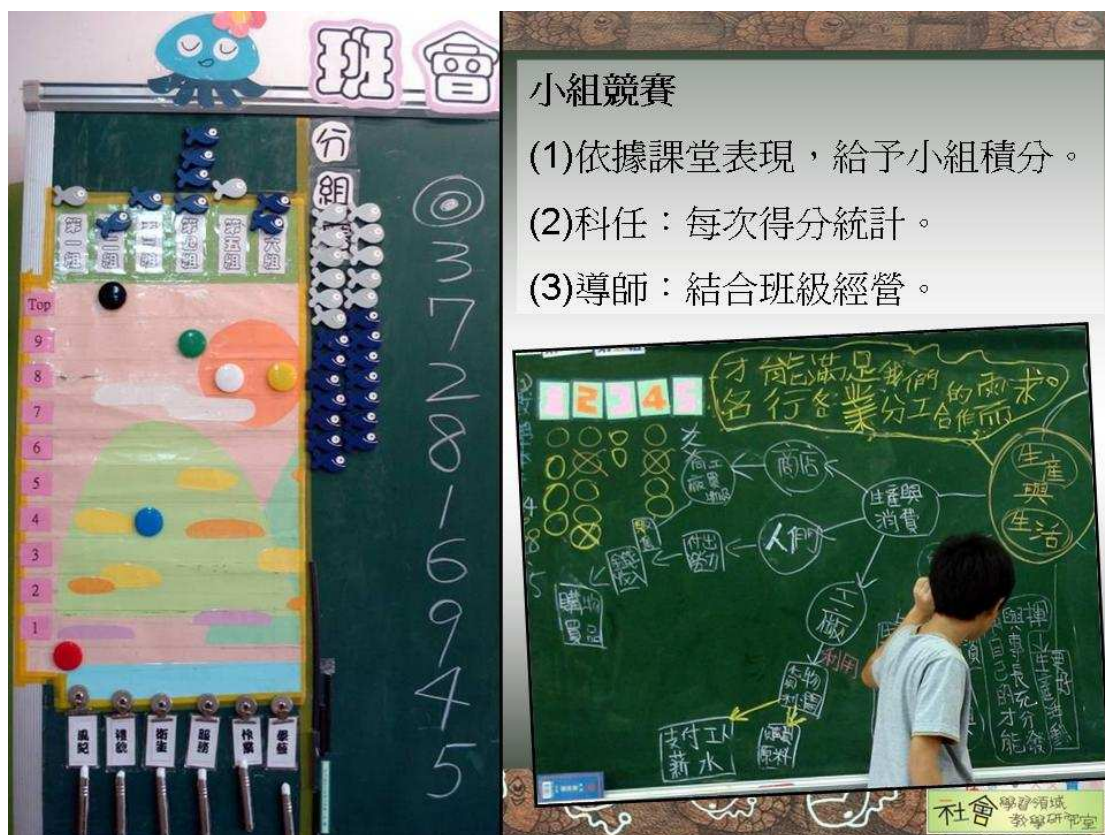 班會
分組
第一組
第二組
第三組
第四組
第五組
第六組
Top
9
8
7
6
5
4
3
2
1
風紀
禮貌
衛生
服務
作業
學藝
◎
3
7
2
8
1
6
9
4
5
小組競賽
(1)依據課堂表現，給予小組積分。
(2)科任：每次得分統計。
(3)導師：結合班級經營。
1 2 3 4 5
才能滿足我們的需求。
各行各業分工合作
生產與生活
生產與消費
商店
人們
付出勞力
購買物品
工廠
利用
支付工人薪水
原料
社會學習領域
教學研究室